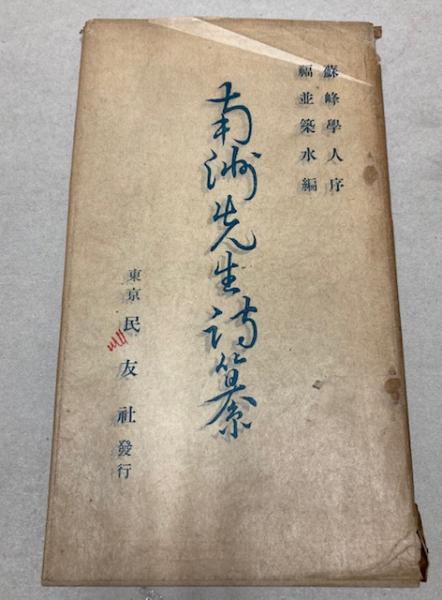 蘇峰學人序
福並築水編
南洲先生詩纂
東京 民友社 發行